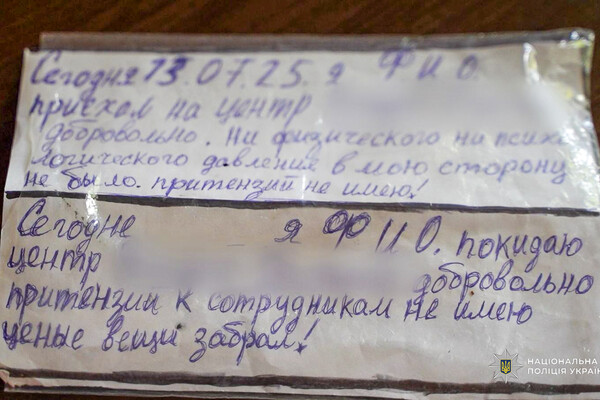 Сегодня 13.07.25. я Ф И О.
приєхал на центр
добровольно. Ни физического на психо
логического давления в мою сторону
не было. притензий не имею!
Сегодне я Ф И О. покидаю
центр
добровольно
притензии к сотрудникам не имею
ценые вещи забрал!
НАЦІОНАЛЬНА
ПОЛІЦІЯ УКРАЇ